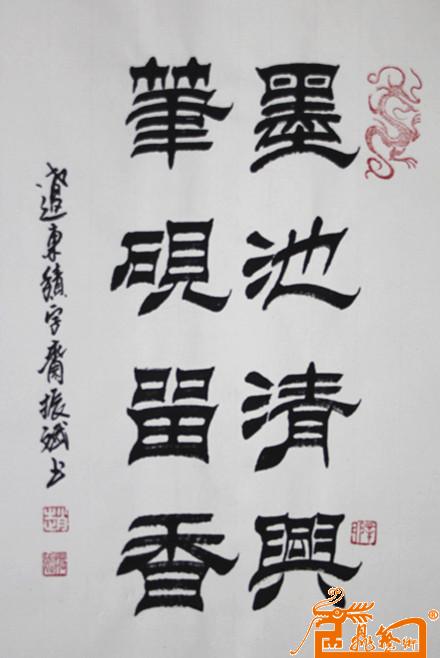 墨池清興
筆硯留香
東積字齋振斌书